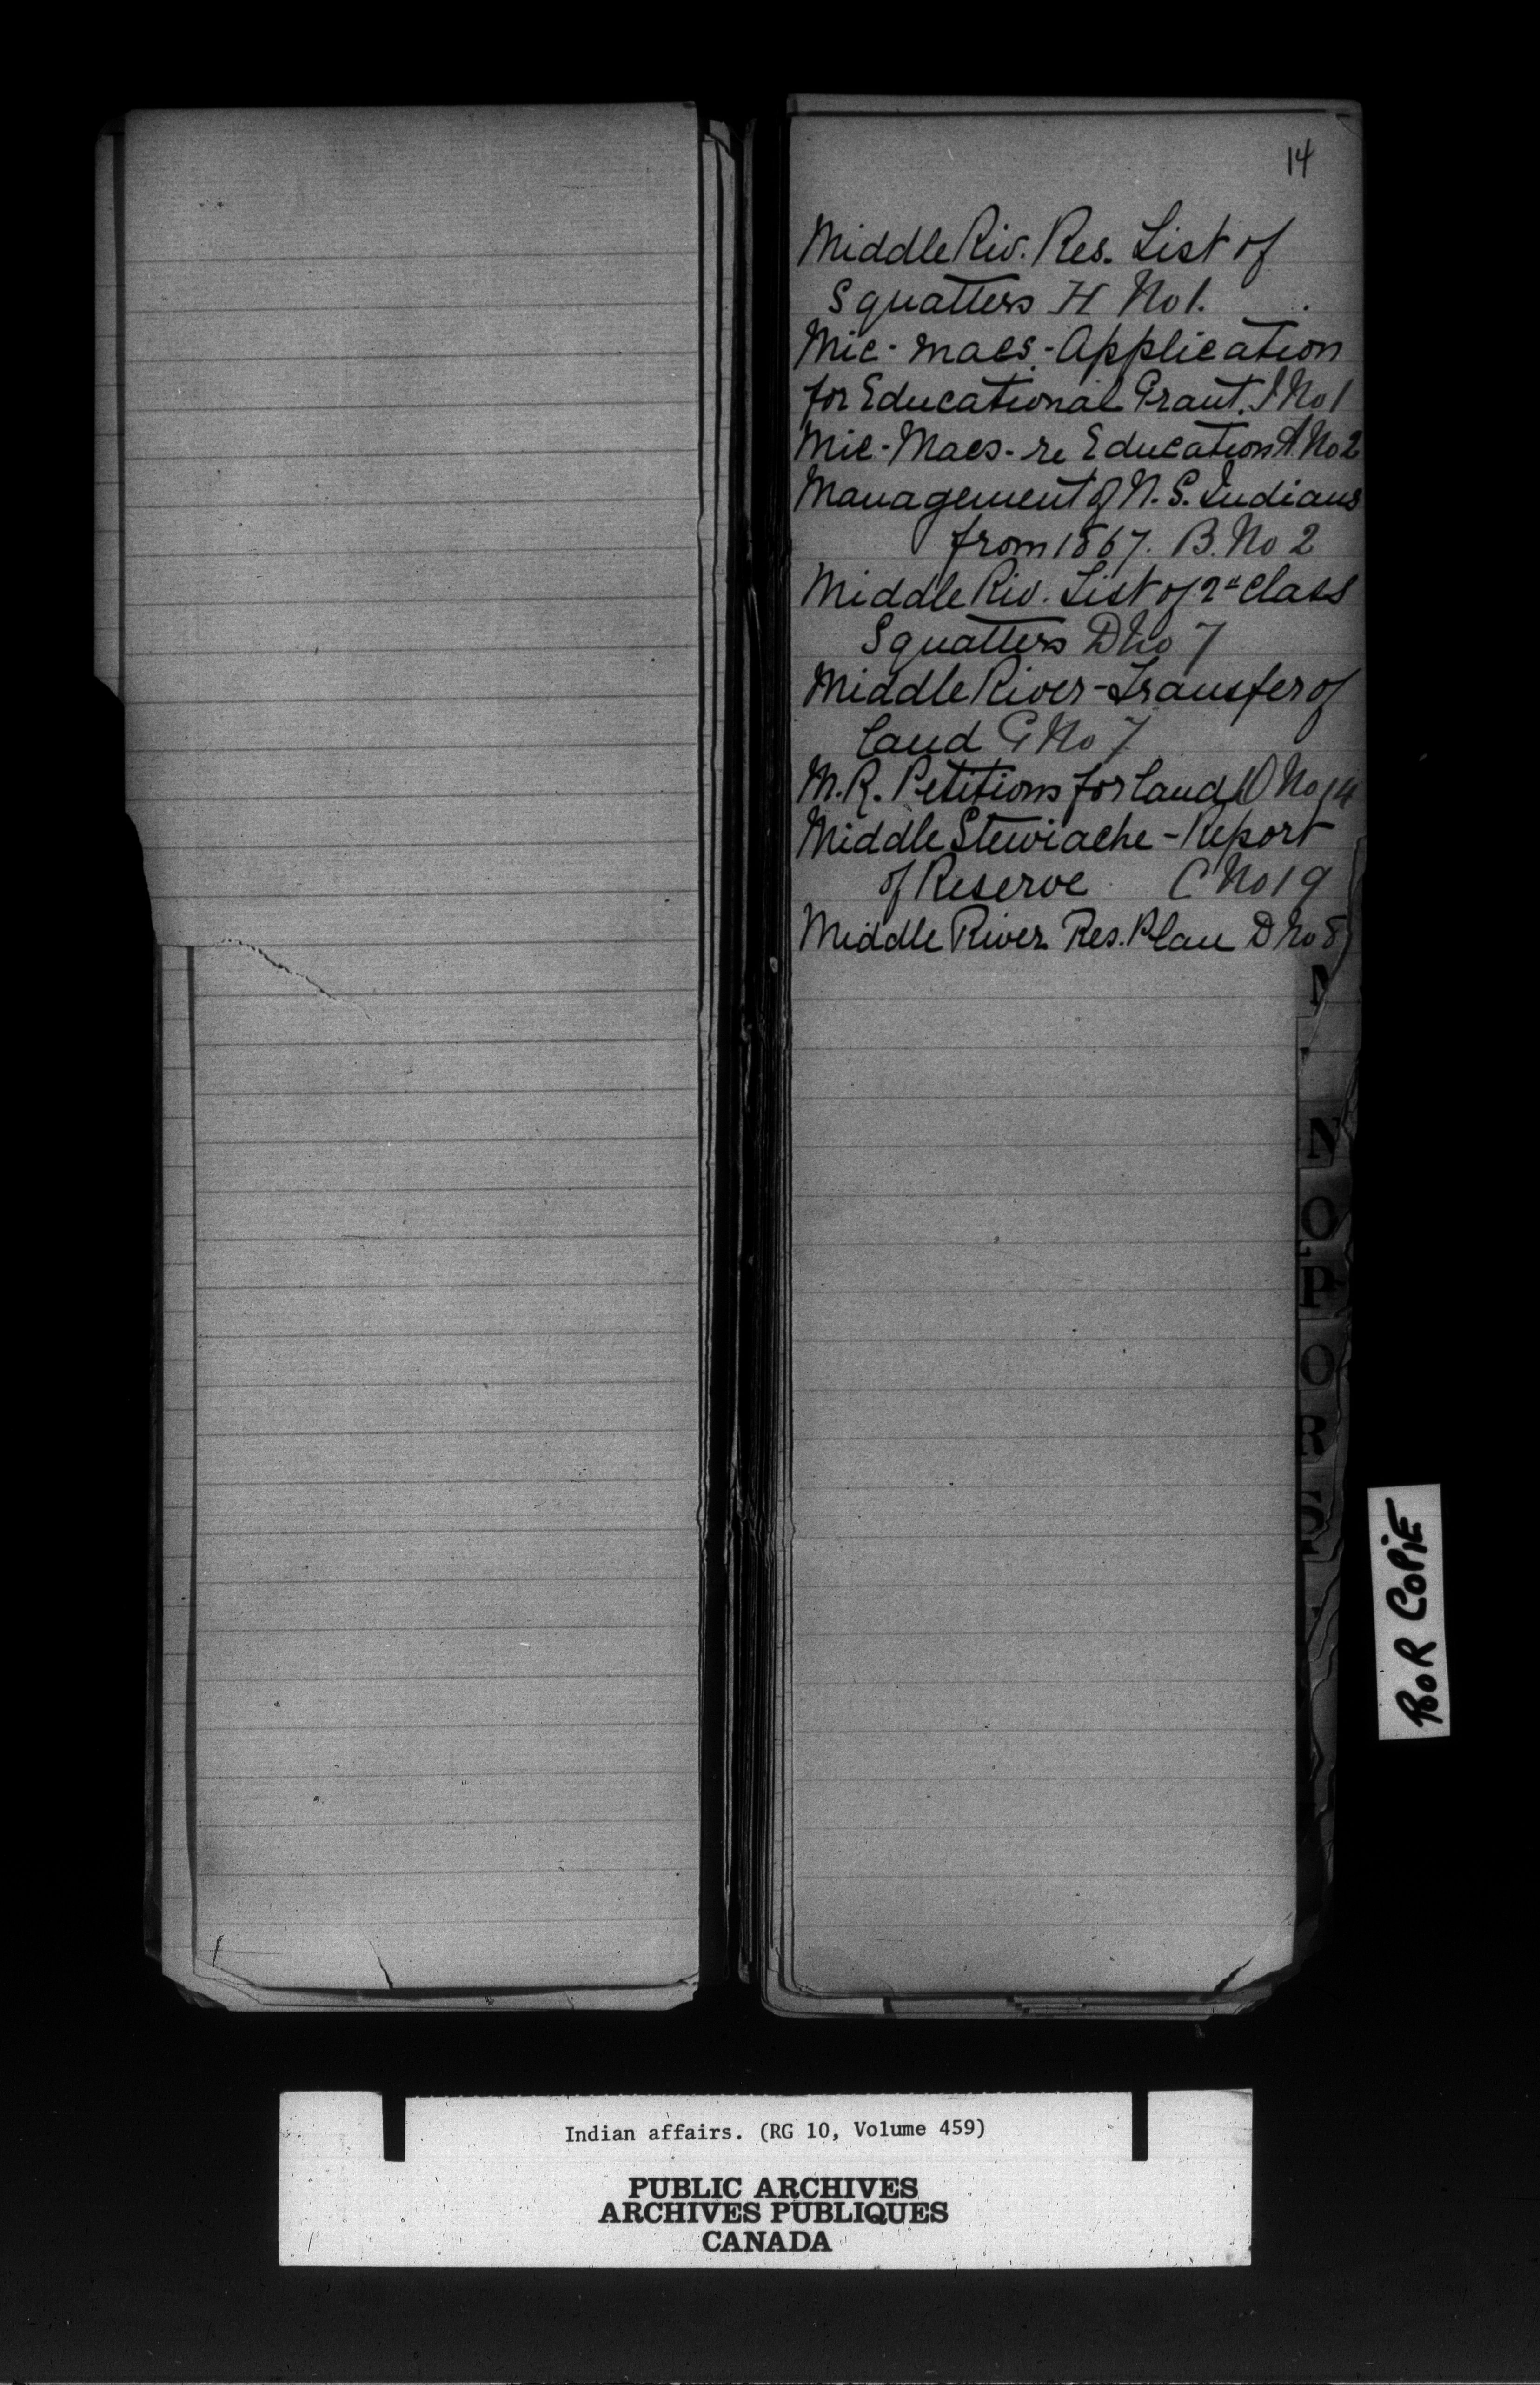 14
Middle Riv. Res. List of
Squatters H No 1.
Mic-Macs-Application
for Educational Grant. I No 1
Mic-Macs-re Education A. No 2
Management of N.S. Indians
from 1867. B. No 2
Middle Riv. List of 2d Class
Squatters D No 7
Middle River-Transfer of
land G No 7
M.R. Petitions for land D No 14
Middle Stewiacke-Report
of Reserve C No 19
Middle River Res. Plan D No 8
N
O
P
R
POOR COPIE
Indian affairs. (RG 10, Volume 459)
PUBLIC ARCHIVES
ARCHIVES PUBLIQUES
CANADA